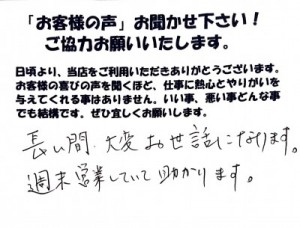 「お客様の声」お聞かせ下さい！
ご協力お願いいたします。
日頃より、当店をご利用いただきありがとうございます。
お客様の喜びの声を聞くほど、仕事に熱心とやりがいを
与えてくれる事はありません。いい事、悪い事どんな事
でも結構です。ぜひ宜しくお願いします。
長い間、大変お世話になります。
週末営業していて助かります。